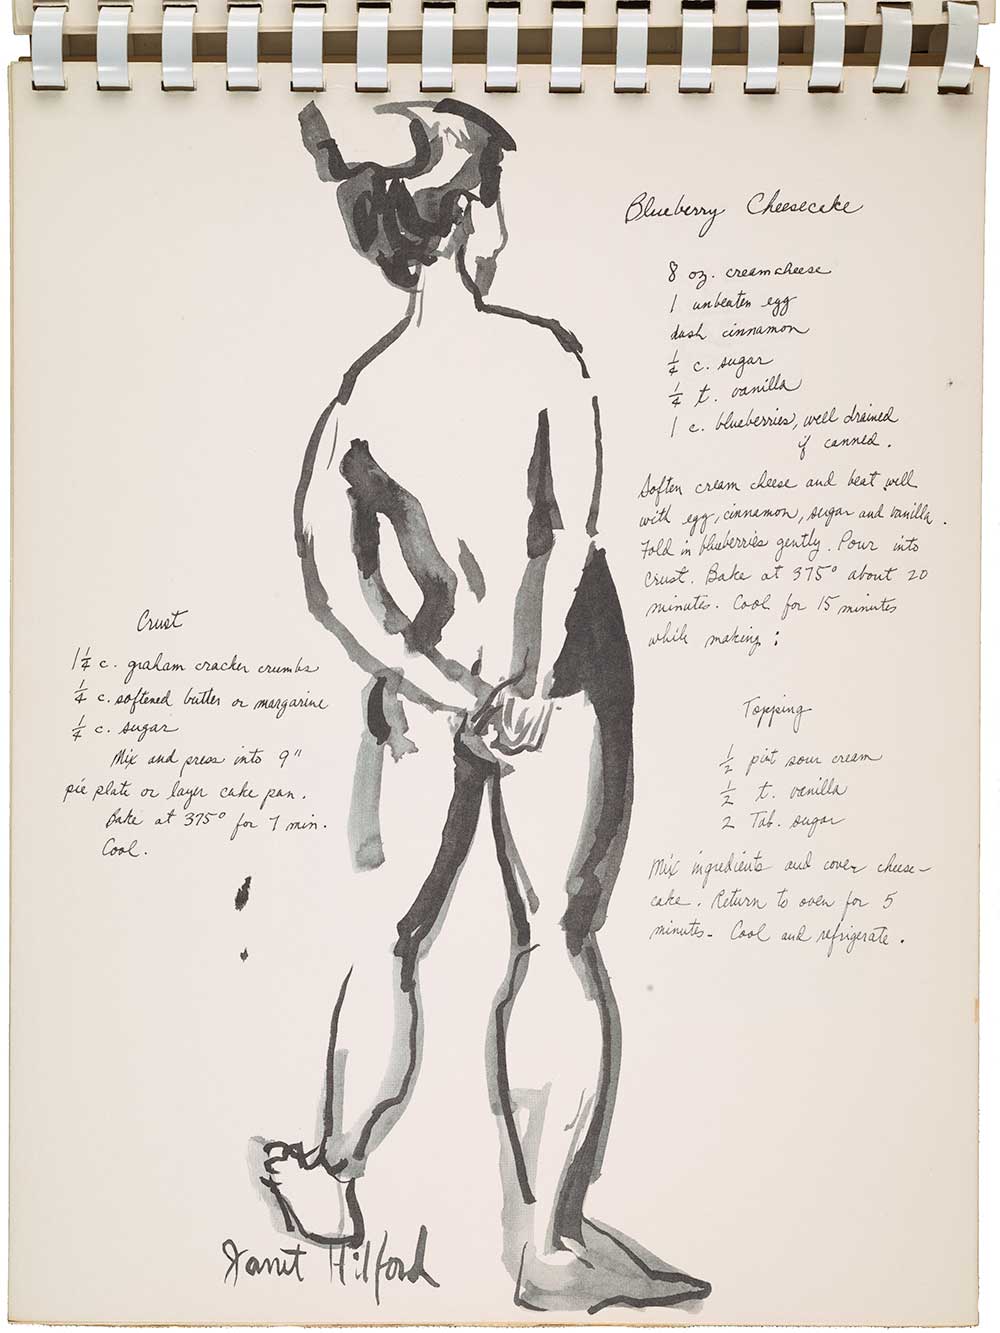 Blueberry Cheesecake
8 oz. creamcheese
1 unbeaten egg
dash cinnamon
1/4 c. sugar
1/4 t. vanilla
1 c. blueberries, well drained
if canned.
Soften cream cheese and beat well
with egg, cinnamon, sugar and vanilla.
Fold in blueberries gently. Pour into
crust. Bake at 375° about 20
minutes. Cool for 15 minutes
while making:
Crust
1 1/4 c. graham cracker crumbs
1/4 c. softened butter or margarine
1/4 c. sugar
Mix and press into 9"
pie plate or layer cake pan.
Bake at 375° for 7 min.
Cool.
Topping
1/2 pint sour cream
1/2 t. vanilla
2 Tab. sugar
Mix ingredients and cover cheese-
cake. Return to oven for 5
minutes. Cool and refrigerate.
Janet Hilford